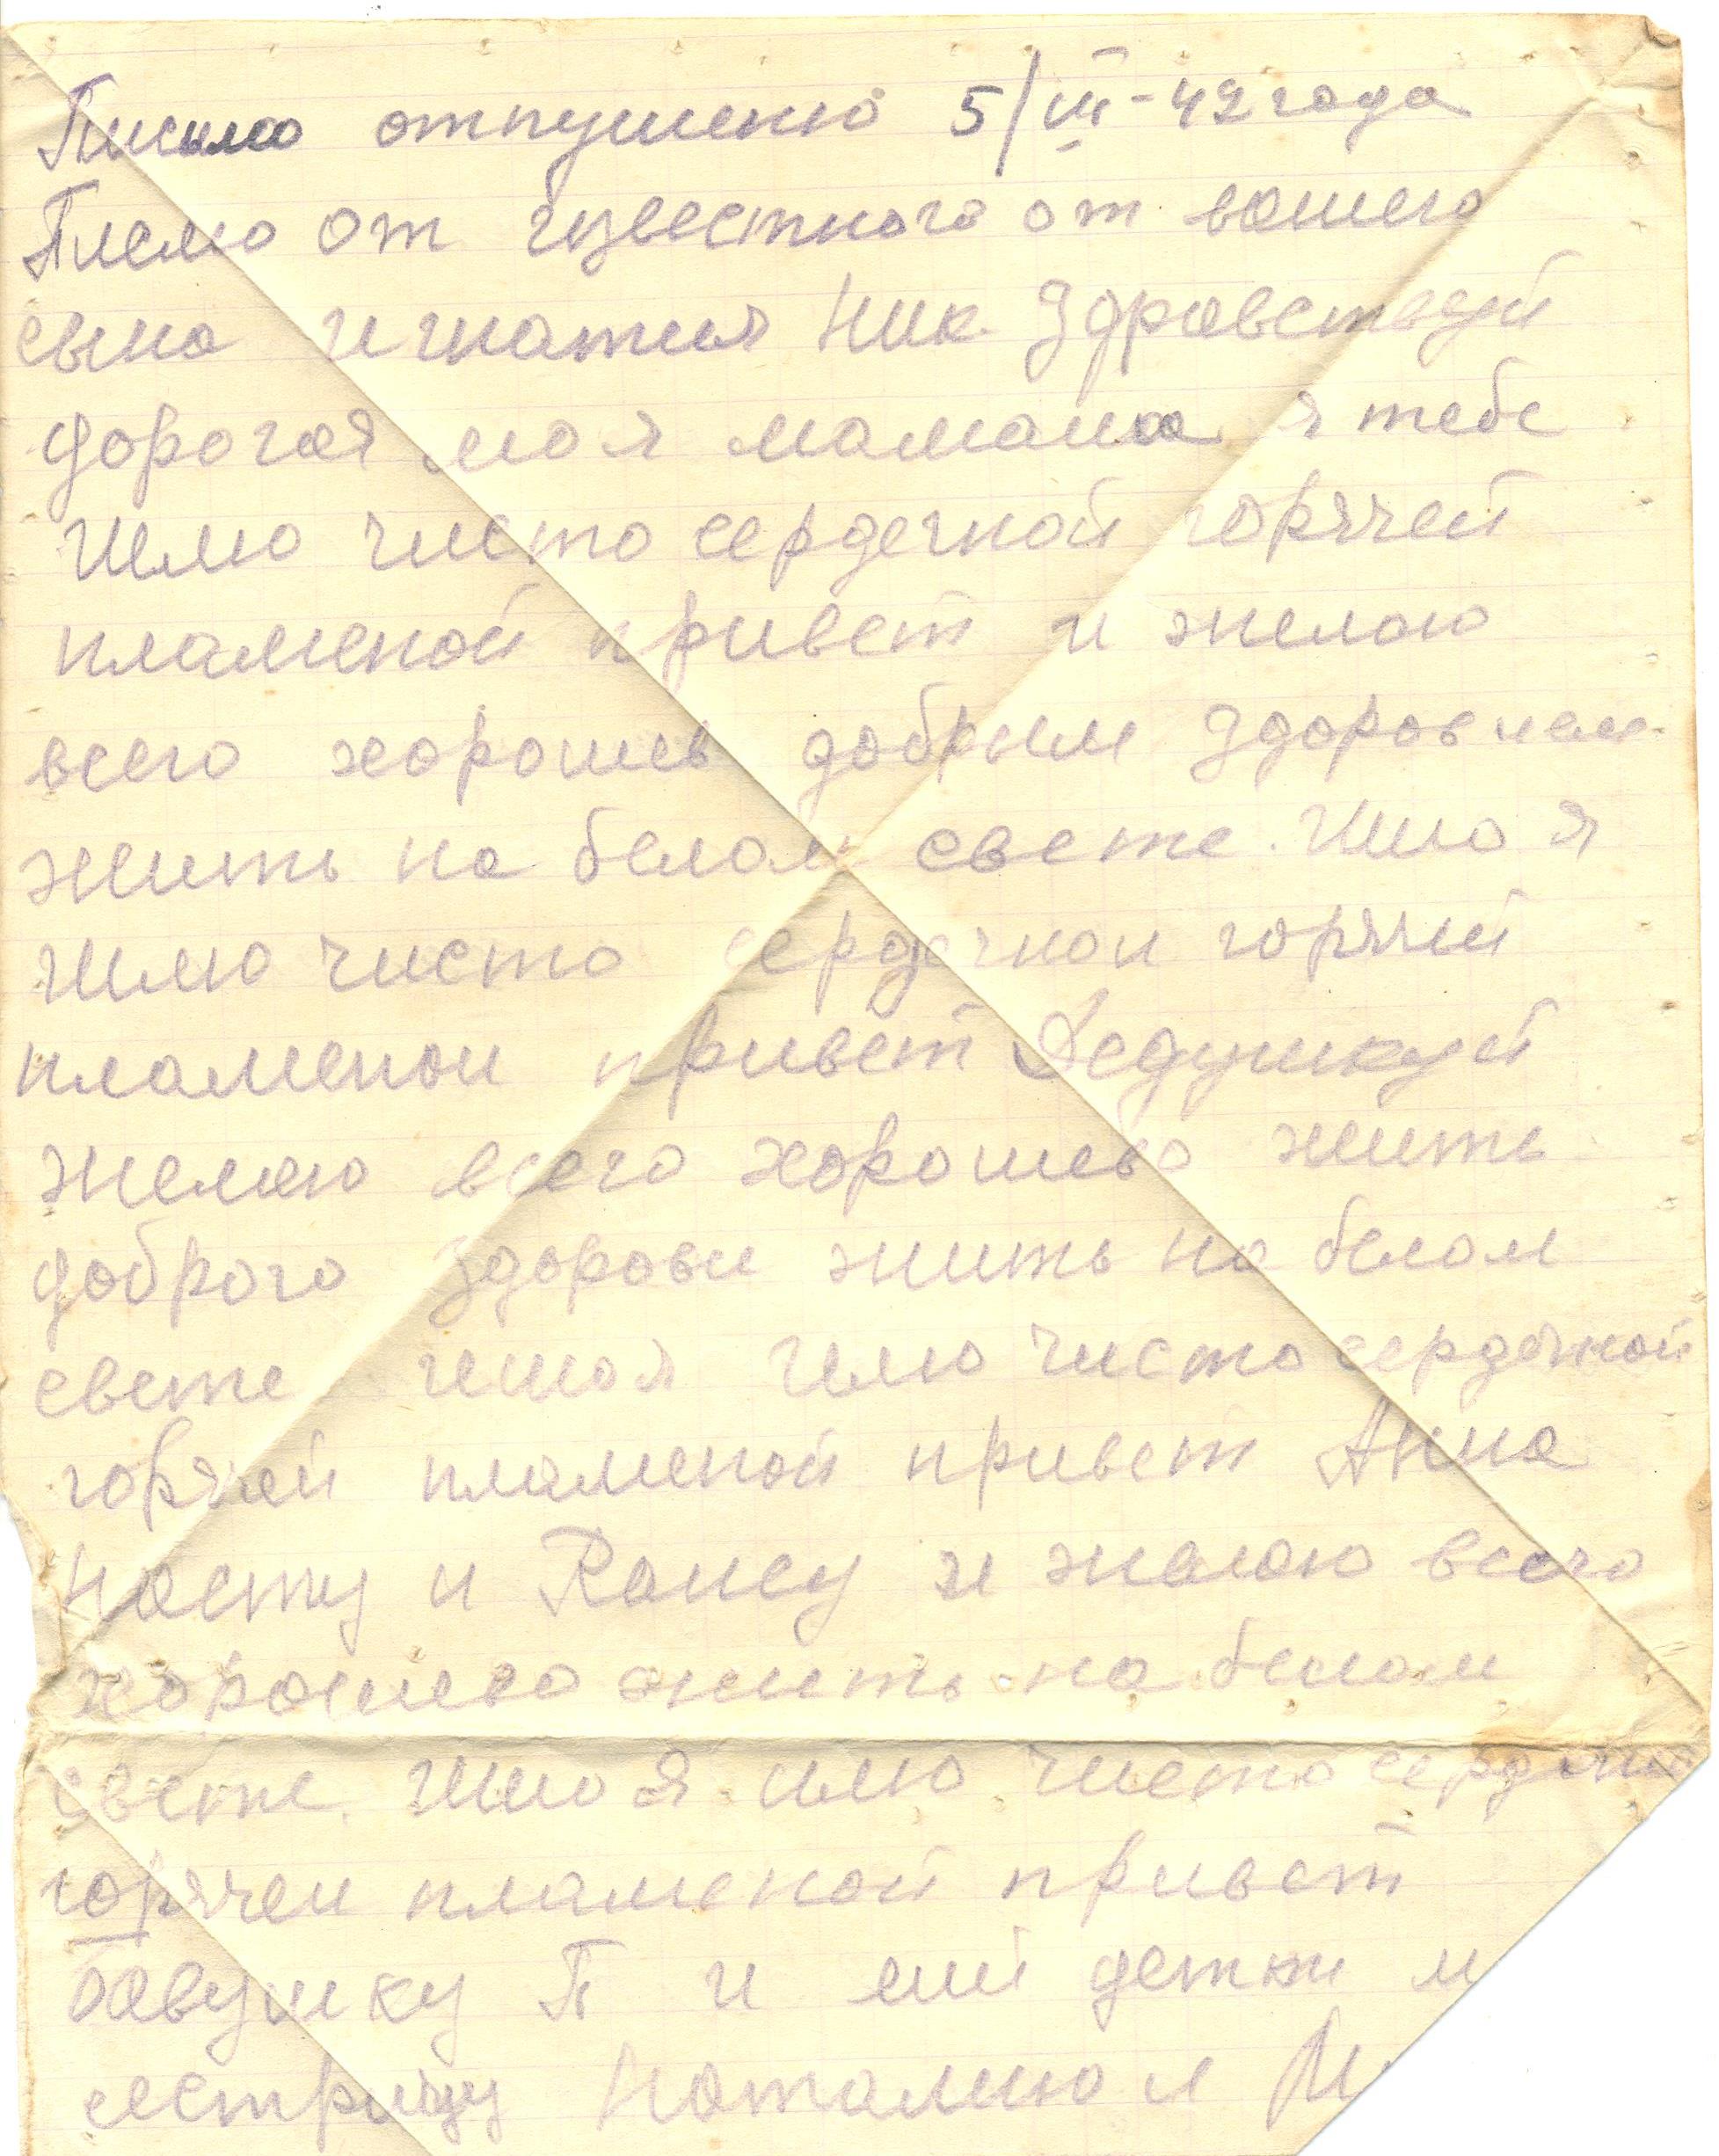 Письмо отпушено 5/III-42 года
Писмо от известного от вашего
сына игнатия Ник Здравствуй
дорогая моя мамаша я тебе
шлю чисто сердечной горячей
пламеной привет и желаю
всего хорошев добрым здоровием
жить на белом свете. Ишо я
шлю чисто сердечнои горячий
пламенои привет Дедушкуй
желаю всего хорошево жить
доброго здорови жить на белом
свете ишо я шлю чисто сердечной
горячей пламеной привет Анна
Насту и Раису и желаю всего
хорошево жить на белом
свете. Ишо я шлю чисто
горячеи пламеной привет
бавушку П и еий детки
сестрицу Наталию